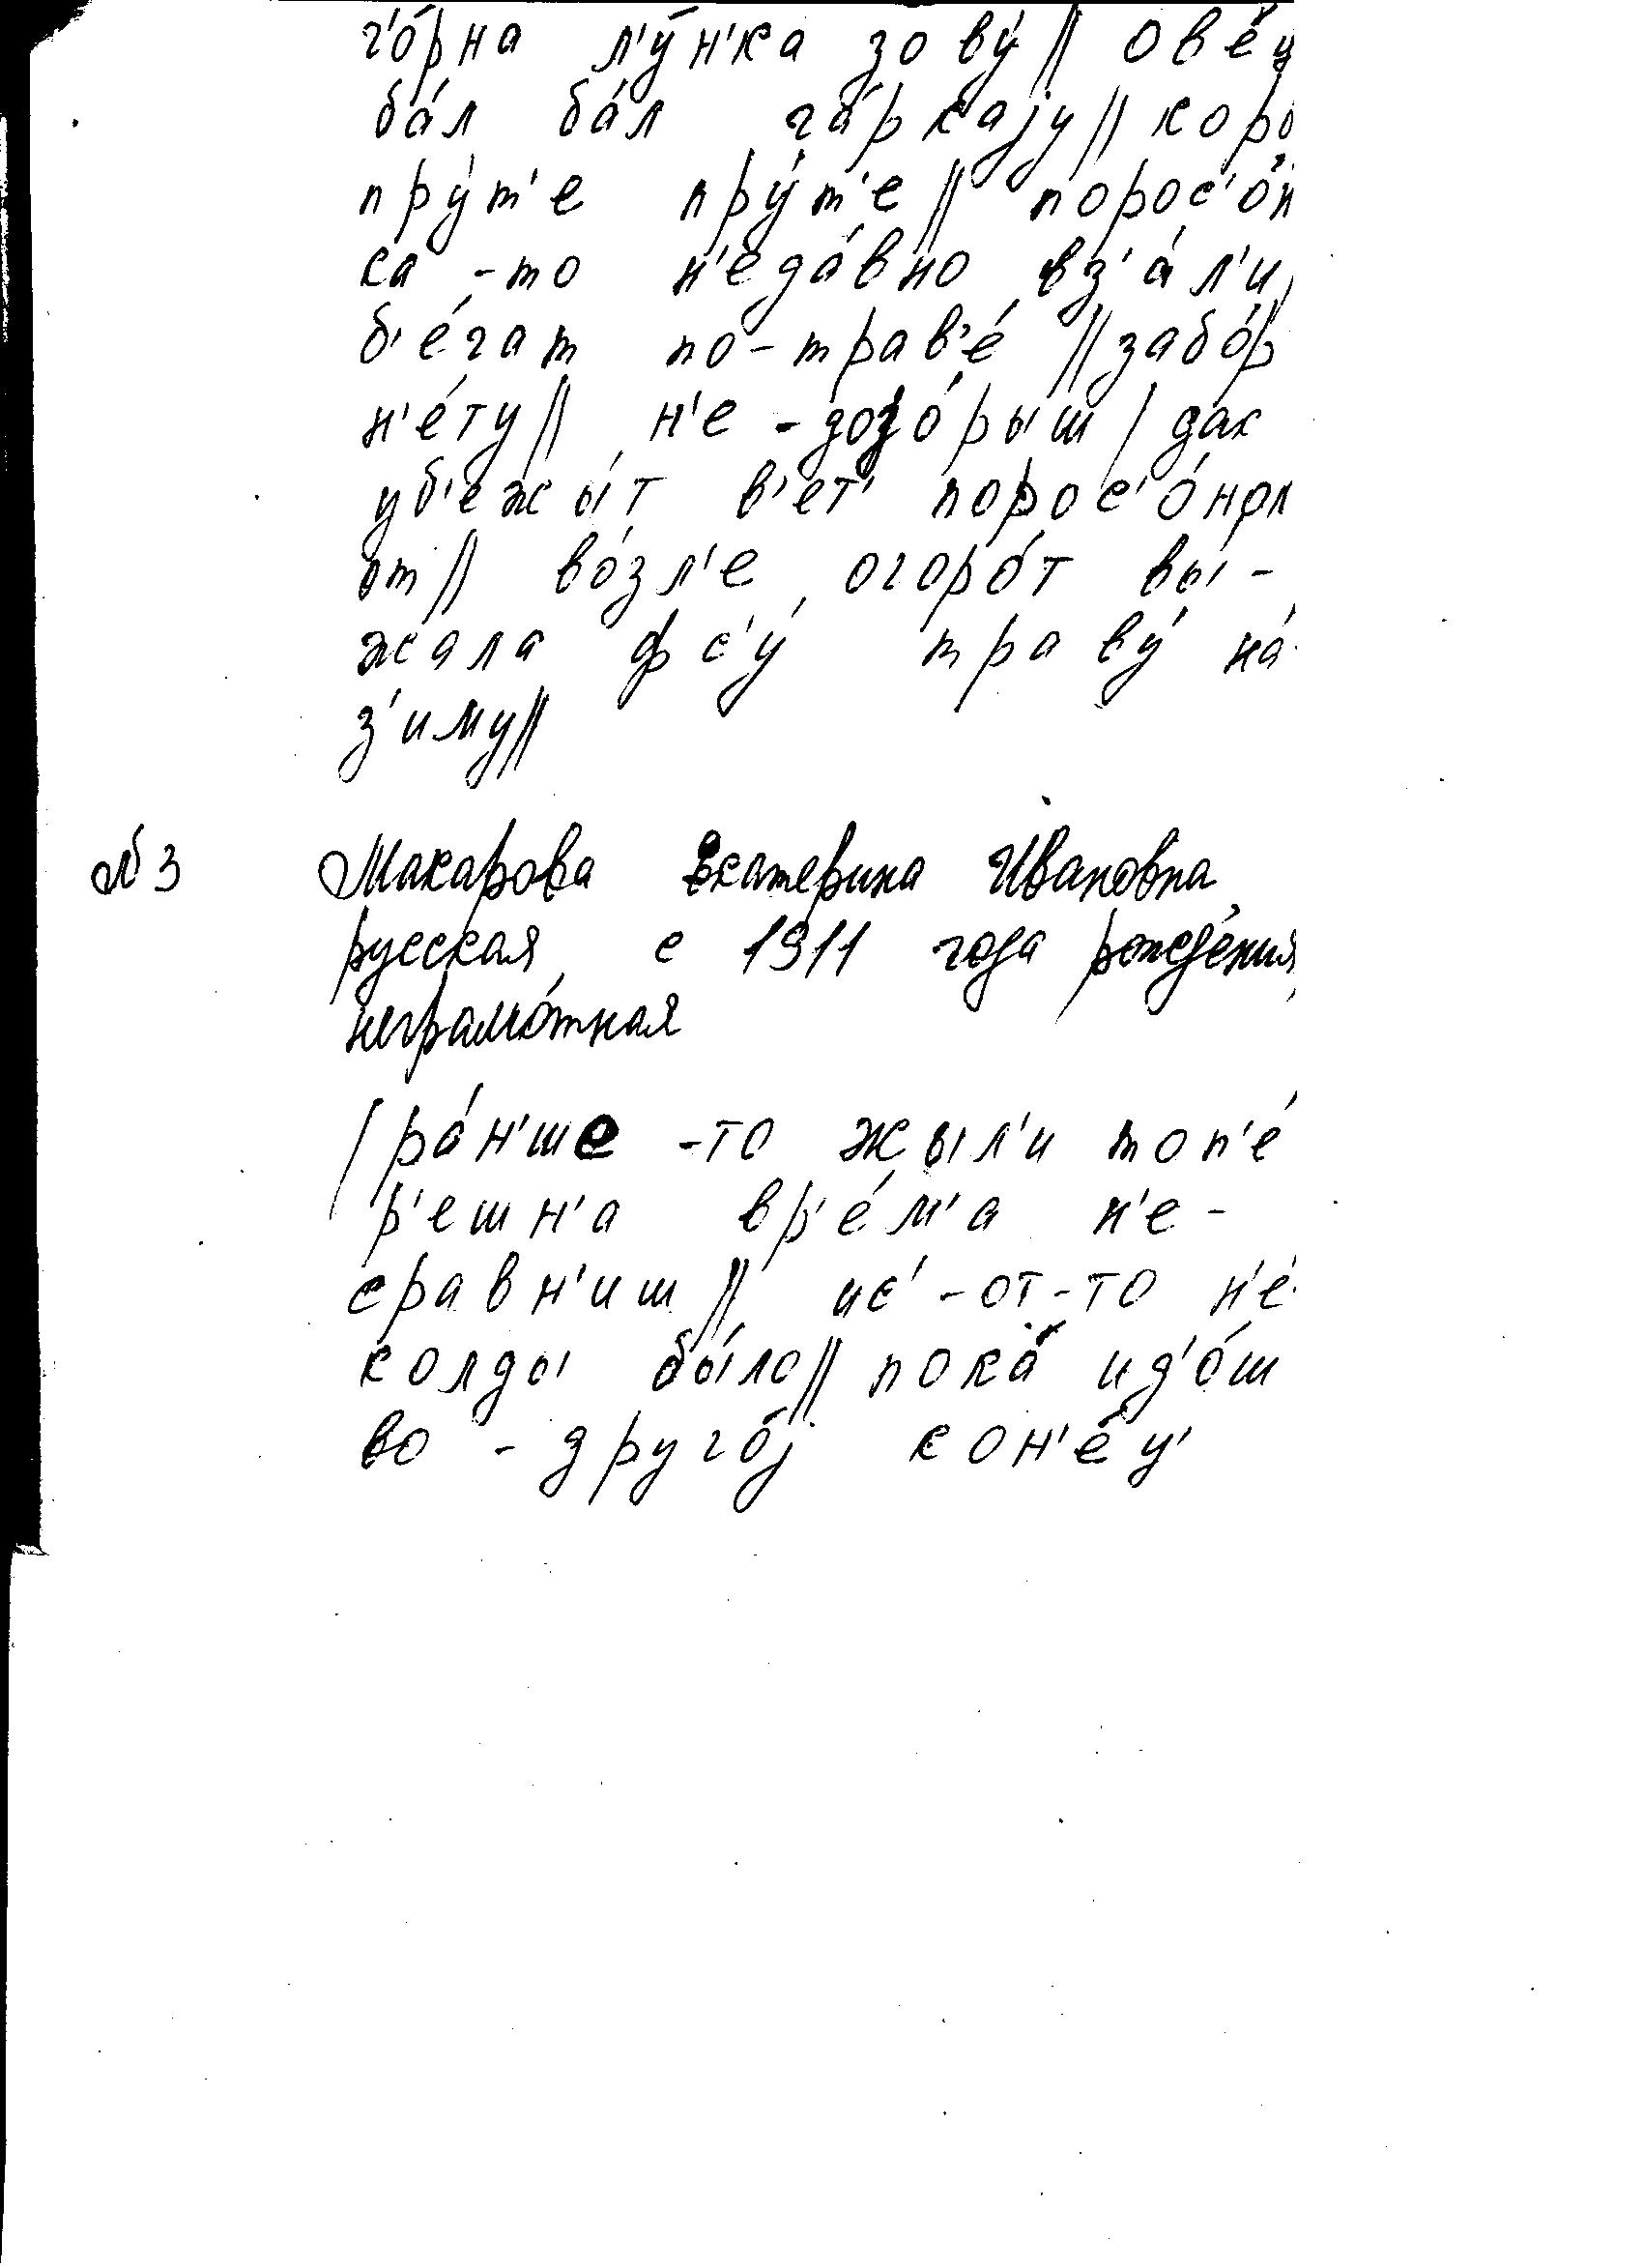 г'о́рна л'у́н'ка зову́ // ове́ц
ба́л ба́л га́ркају // коро
пру́т'е пру́т'е // порос'о́н
ка -то н'еда́вно вз'а́л'и,
б'е́гат по-трав'е́ // забо́р
н'е́ту // н'е - дозо́рыш / дак
уб'ежы́т в'ет' порос'о́нок
от // во́зл'е огоро́т вы́ -
жала фс'у́ траву́ на́
з'иму //
№3 Макарова Екатерина Ивановна,
русская, с 1911 года рожде́ния,
неграмо́тная
/ ра́н'ше -то жыл'и топ'е́
р'ешн'а вр'е́м'а н'е -
сравн'иш // ис' -от-то н'е́
колды бы́ло // пока́ ид'о́ш
во - друго́ј кон'е́ц'